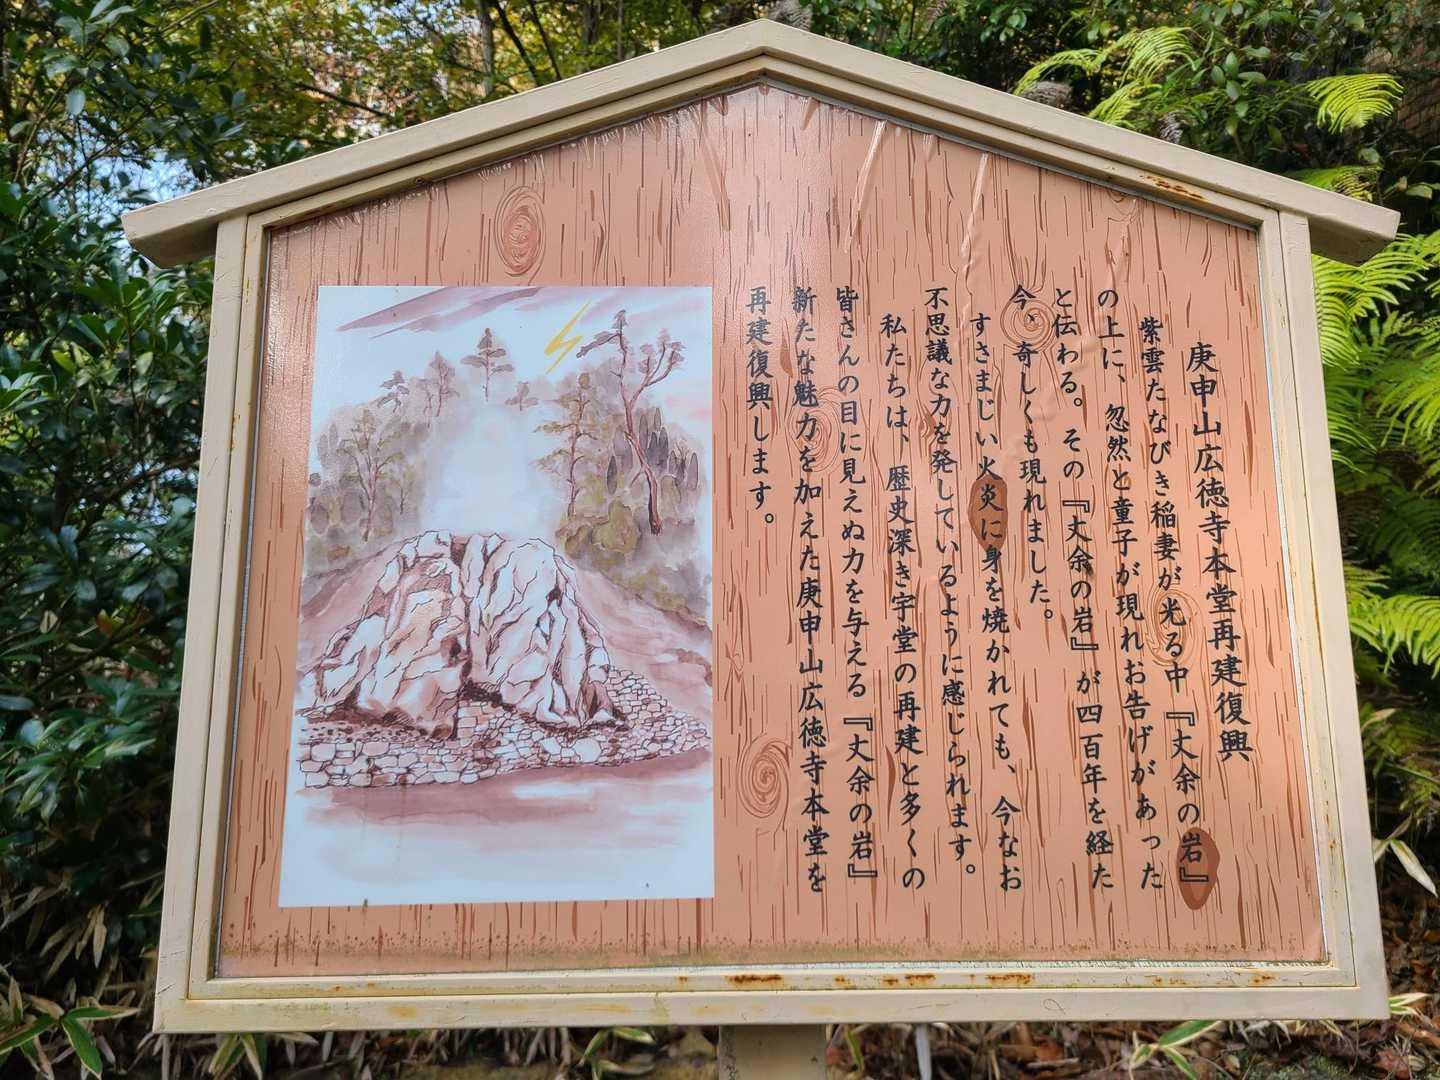 庚申山広徳寺本堂再建復興
紫雲たなびき稲妻が光る中『丈余の岩』
の上に、忽然と童子が現れお告げがあった
と伝わる。その『丈余の岩』が四百年を経た
今、奇しくも現れました。
すさまじい火炎に身を焼かれても、今なお
不思議な力を発しているように感じられます。
私たちは、歴史深き宇堂の再建と多くの
皆さんの目に見えぬ力を与える『丈余の岩』
新たな魅力を加えた庚申山広徳寺本堂を
再建復興します。